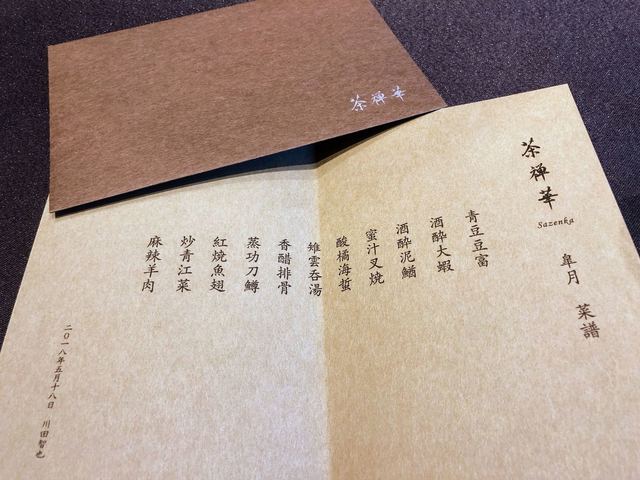 茶禅華
茶禅華
Sazenka
皐月 菜譜
青豆豆富
酒醉大蝦
酒醉泥鰌
蜜汁叉焼
酸橘海蜇
雉雲呑湯
香醋排骨
蒸功刀鱒
紅焼魚翅
炒青江菜
麻辣羊肉
二〇一八年五月十八日 川田智也